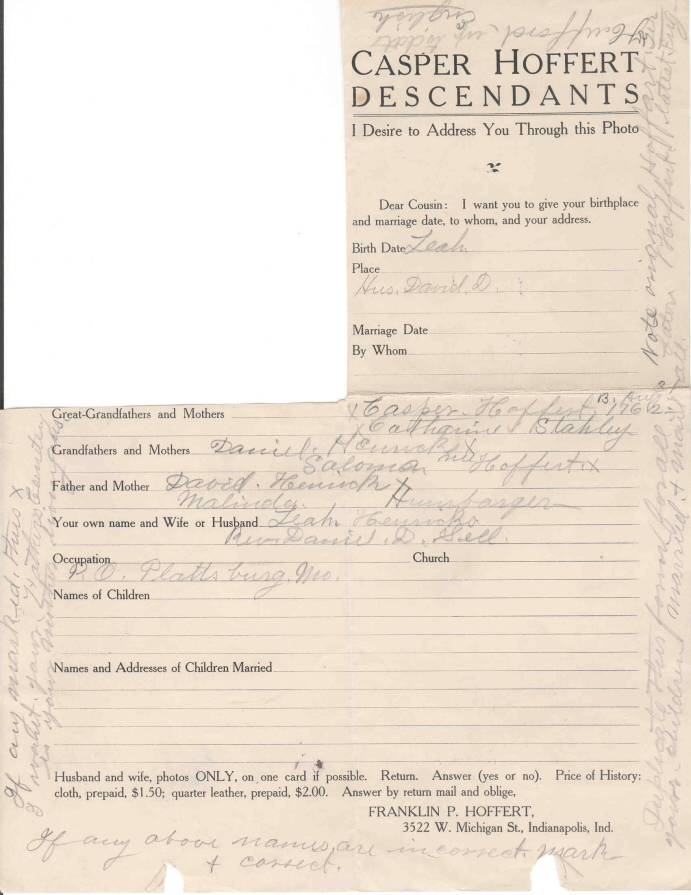 English
Hufford up to date
CASPER HOFFERT
DESCENDANTS
I Desire to Address You Through this Photo
Dear Cousin: I want you to give your birthplace
and marriage date, to whom, and your address.
Birth Date Leah
Place
Hus. David. D.
Marriage Date
By Whom
Great-Grandfathers and Mothers Casper. Hoffert. B. Aug 1762
Catharine Stahley
Grandfathers and Mothers Daniel. Henricks X
Saloma nee Hoffert X
Father and Mother David. Henrick X
Malinda. Hunsbarger
Your own name and Wife or Husband Leah Henricks
Rev. Daniel. D. Sell.
Occupation Church
P.O. Plattsburg, Mo.
Names of Children
Names and Addresses of Children Married
Husband and wife, photos ONLY, on one card if possible. Return. Answer (yes or no). Price of History:
cloth, prepaid, $1.50; quarter leather, prepaid, $2.00. Answer by return mail and oblige,
FRANKLIN P. HOFFERT,
3522 W. Michigan St., Indianapolis, Ind.
If any above names, are incorrect. mark
+ correct.
If any marked. thus X
is your
Note originaly Hoffart
later Hoffert latest
Duplicate this form for all
your children married + mail all.